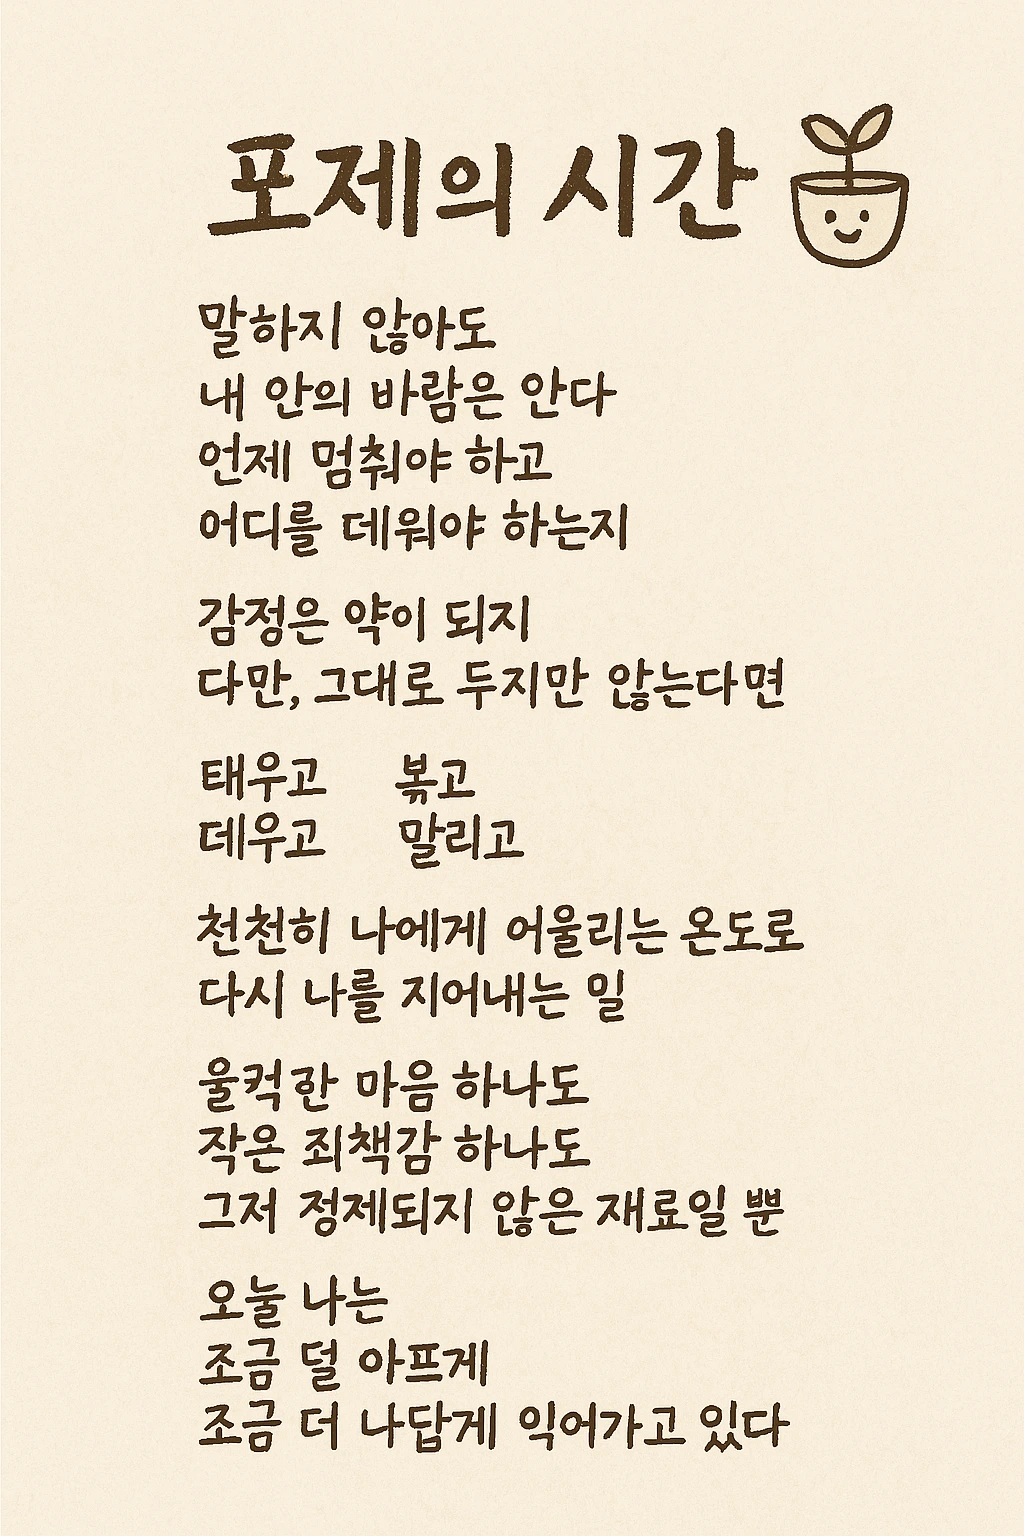 포제의 시간
말하지 않아도
내 안의 바람은 안다
언제 멈춰야 하고
어디를 데워야 하는지
감정은 약이 되지
다만, 그대로 두지만 않는다면
태우고 볶고
데우고 말리고
천천히 나에게 어울리는 온도로
다시 나를 지어내는 일
울컥한 마음 하나도
작은 죄책감 하나도
그저 정제되지 않은 재료일 뿐
오눌 나는
조금 덜 아프게
조금 더 나답게 익어가고 있다